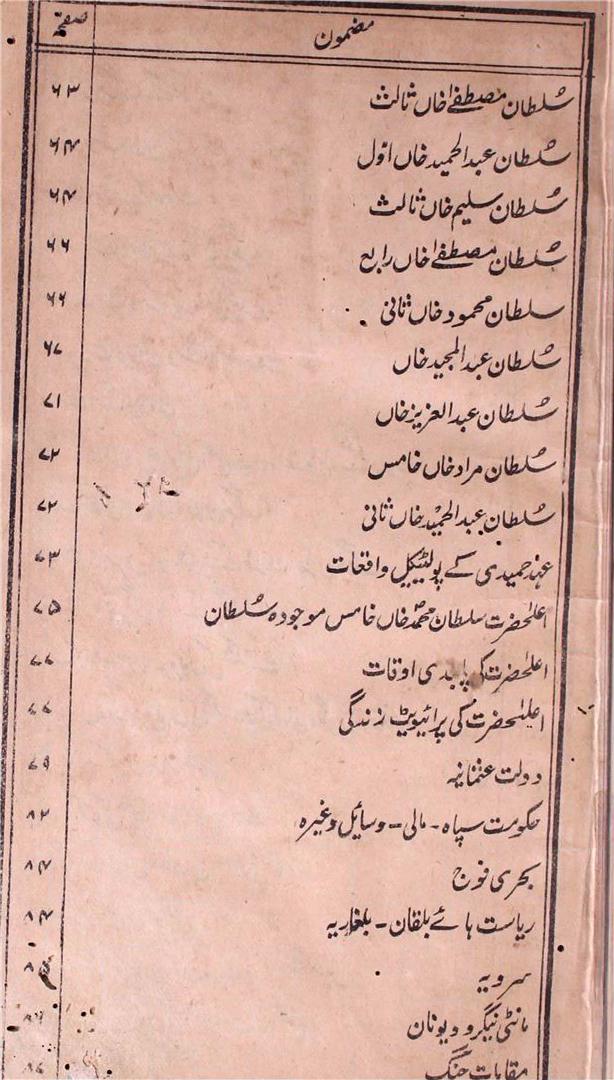 مضمون صفحہ
سُلطان مصطفےٰ خاں ثالث ۶۳
سُلطان عبدالحمید خاں اوّل ۶۴
سُلطان سلیم خاں ثالث ۶۴
سُلطان مصطفےٰ خاں رابع ۶۶
سلطان محمود خاں ثانی ۶۶
سُلطان عبدالمجید خاں ۶۷
سُلطان عبدالعزیز خاں ۷۱
سُلطان مراد خاں خامس ۷۲
سُلطان عبدالحمید خاں ثانی ۷۲
عہد حمیدی کے پولٹیکل واقعات ۷۳
اعلیٰحضرت سلطان محمدؐ خاں خامس موجودہ سُلطان ۷۵
اعلیٰحضرت کی پابندی اوقات ۷۷
اعلیٰحضرت کی پرائیویٹ زندگی ۷۷
دولت عثمانیہ ۷۹
حکومت سپاہ - مالی - وسایل وغیرہ ۸۲
بحری فوج ۸۴
ریاست ہائے بلقان - بلغاریہ ۸۴
سرویہ
مانٹی نیگرو و یونان ۸۶
مقامات جنگ